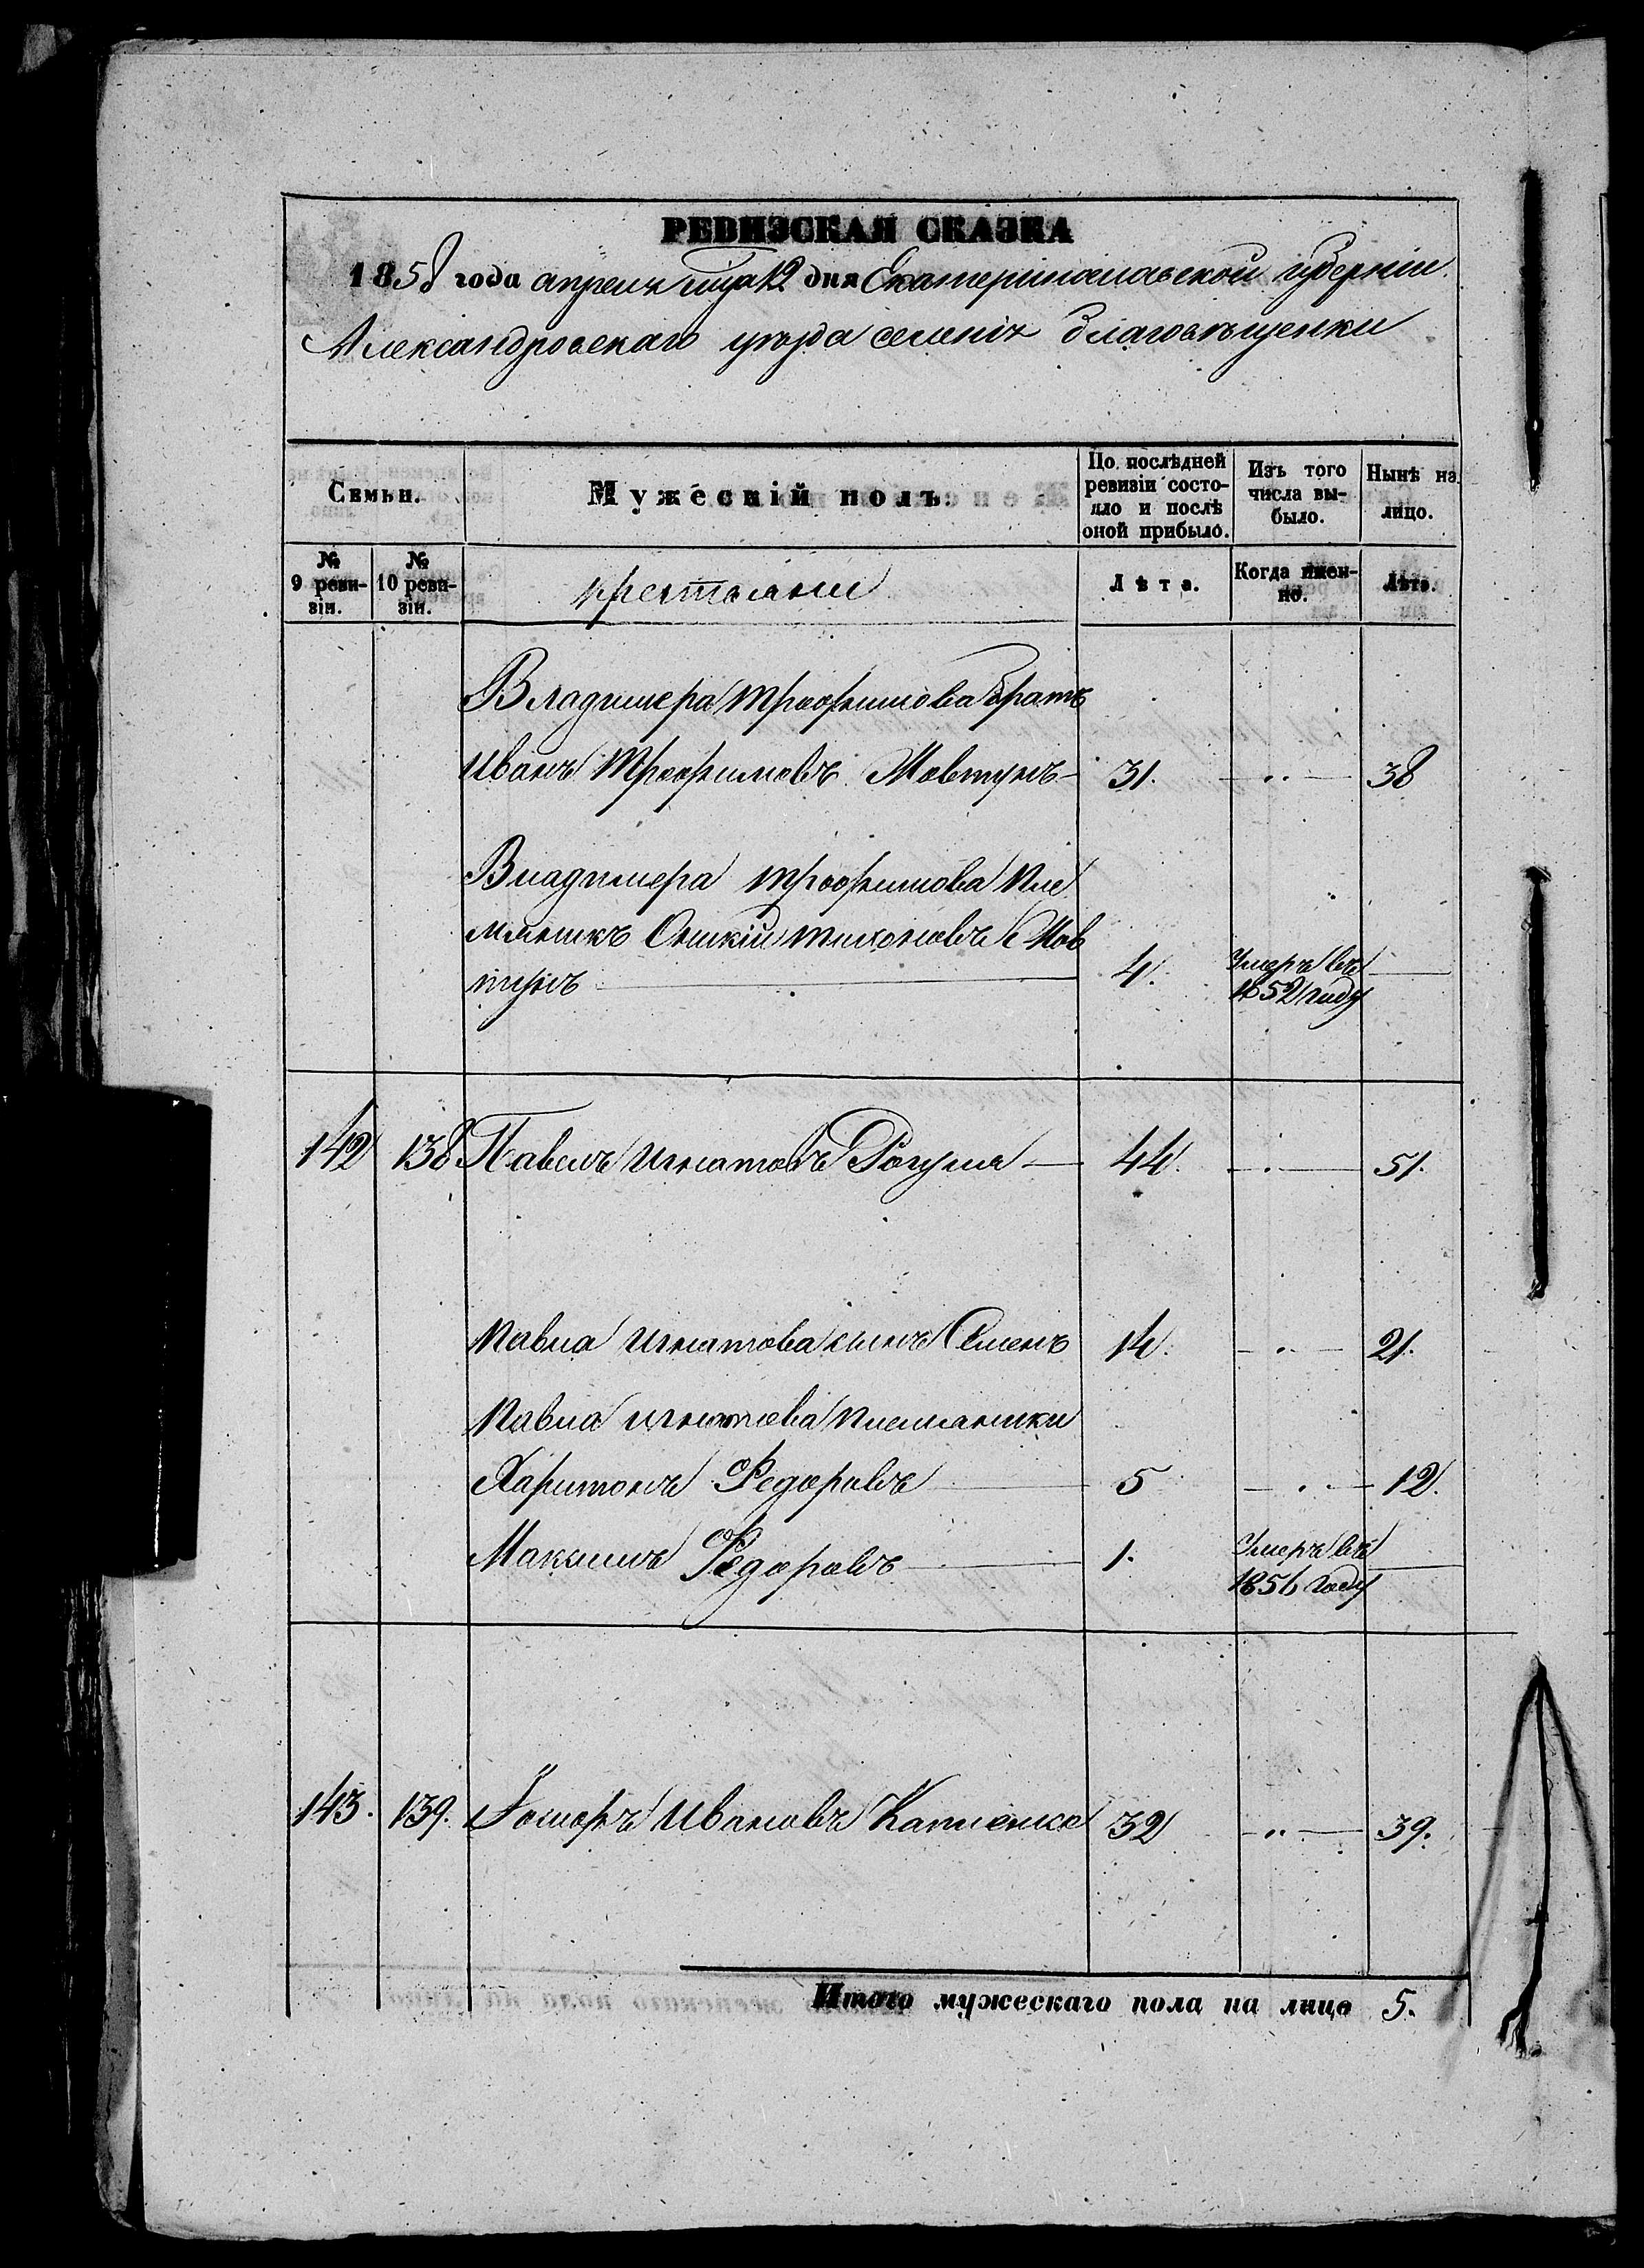 РЕВИЗСКАЯ СКАЗКА
1858 года апреля м-ца 12 дня Екатеринославской губерніи
Александровскаго уѣзда селенія Благовѣщенки
Семьи.
Мужескій полъ.
По послѣдней ревизіи состояло и послѣ оной прибыло.
Изъ того числа выбыло.
Нынѣ на лицо.
№ 9 ревизіи.
№ 10 ревизіи.
крестьяне
Лѣта.
Когда именно.
Лѣта.
Владимера Трофимова братъ
Иванъ Трофимовъ Мовтунъ 31. 38
Владимера Трофимова пле
мяникъ Тихоновъ Мов
тунъ 4. Умеръ въ 1852 году
142 138 Павелъ Игнатовъ 44. 51.
Павла Игнатова сынъ Семенъ 14. 21.
Павла Игнатова племяники
Харитонъ Федоровъ 5 12.
Максимъ Федоровъ 1. Умеръ въ 1856 году
143. 139. Ивановъ 32 39.
Итого мужескаго пола на лицо 5.